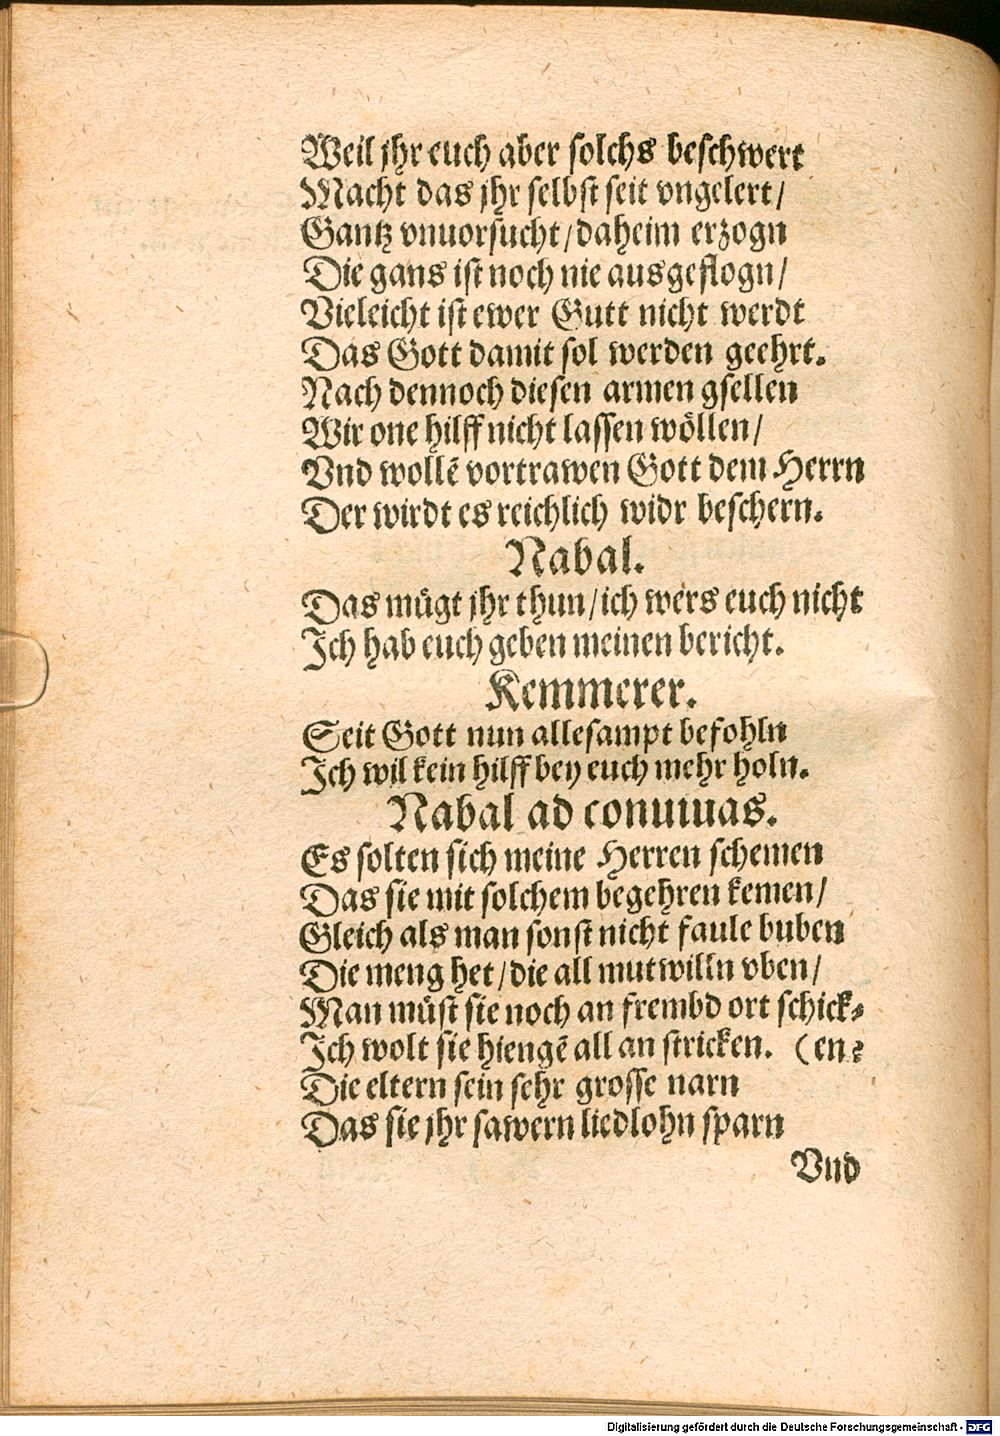 Weil jhr euch aber solchs beschwert
Macht das jhr selbst seit vngelert/
Gantz vnuorsucht/daheim erzogn
Die gans ist noch nie ausgeflogn/
Vieleicht ist ewer Gutt nicht werdt
Das Gott damit sol werden geehrt.
Nach dennoch diesen armen gsellen
Wir one hilff nicht lassen wöllen/
Vnd wollē vortrawen Gott dem Herrn
Der wirdt es reichlich widr beschern.
Nabal.
Das mügt jhr thun/ich wers euch nicht
Ich hab euch geben meinen bericht.
Kemmerer.
Seit Gott nun allesampt befohln
Ich wil kein hilff bey euch mehr holn.
Nabal ad conuiuas.
Es solten sich meine Herren schemen
Das sie mit solchem begehren kemen/
Gleich als man sonst nicht faule buben
Die meng het/die all mutwilln vben/
Man müst sie noch an frembd ort schick⸗
Ich wolt sie hiengē all an stricken. (en⸗
Die eltern sein sehr grosse narn
Das sie jhr sawern liedlohn sparn
Vnd
Digitalisierung gefördert durch die Deutsche Forschungsgemeinschaft - DFG